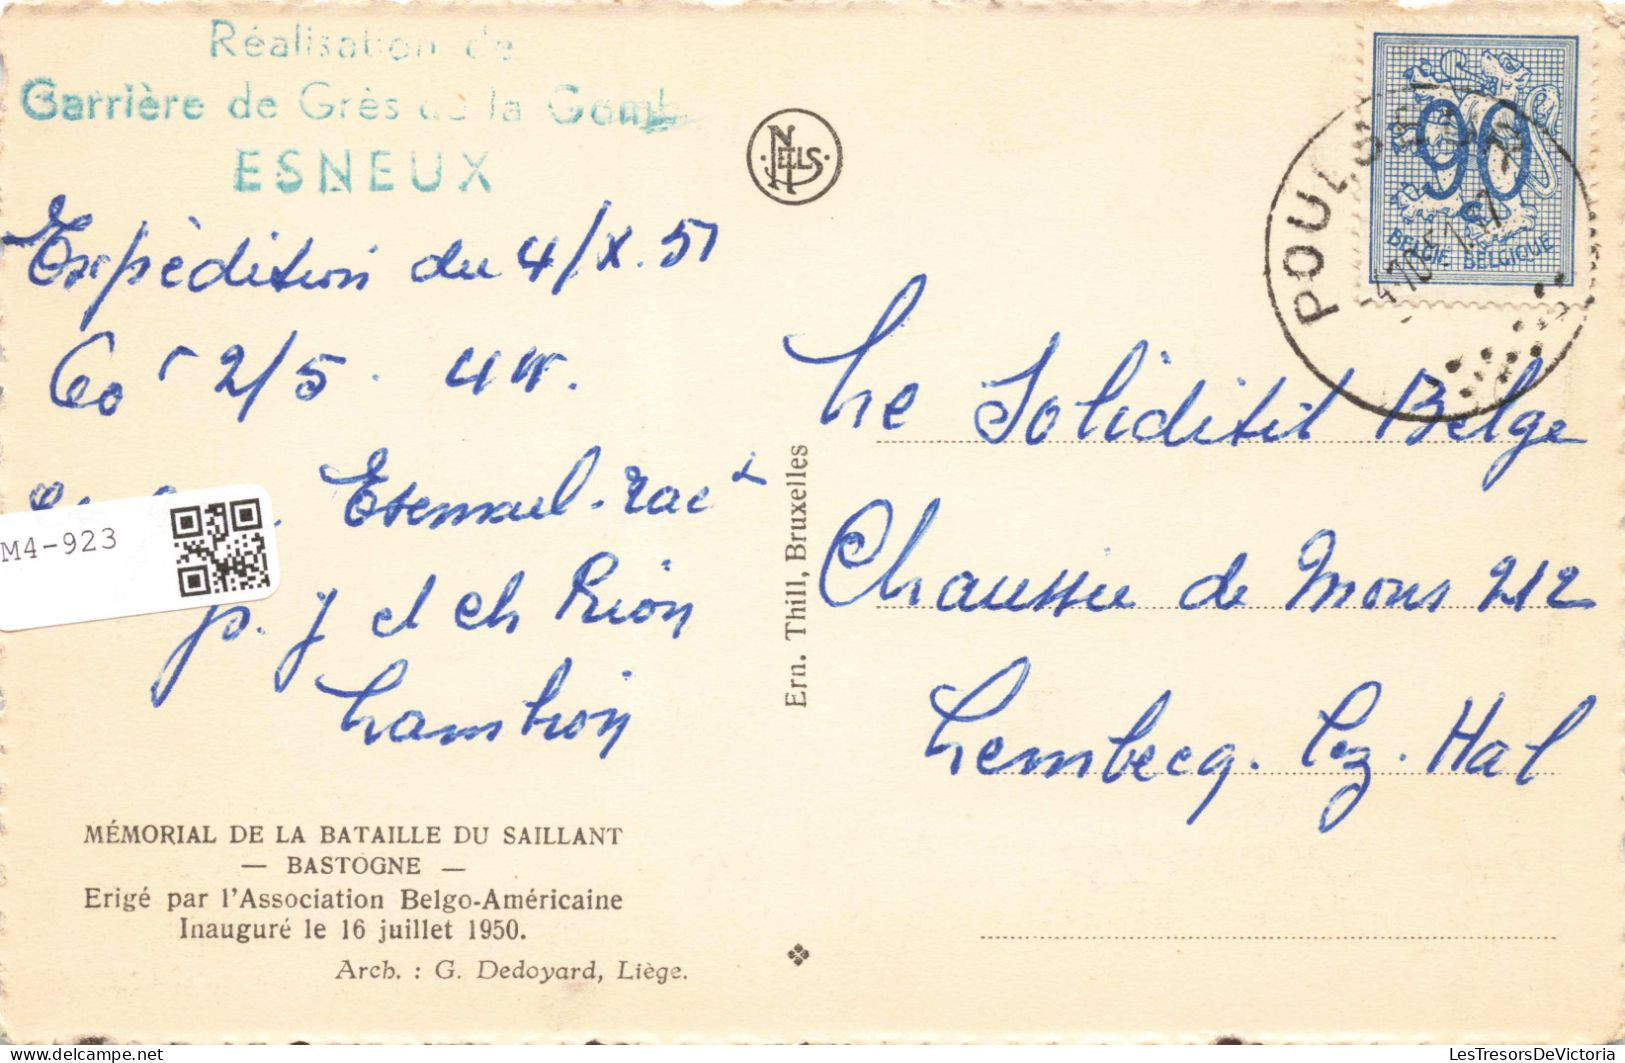 Réalisation de
Carrière de Grès de la Gomb
ESNEUX
Expédition du 4/X. 51
Co 2/5. 4W.
M4-923
p. J et Ch Rion
Lambion
MÉMORIAL DE LA BATAILLE DU SAILLANT
— BASTOGNE —
Erigé par l'Association Belgo-Américaine
Inauguré le 16 juillet 1950.
Arch. : G. Dedoyard, Liège.
NELS
Ern. Thill, Bruxelles
90
BELGIE BELGIQUE
POULSEUR
Le Soliditit Belge
Chaussée de Mons 212
Lembecq. lez. Hal
LesTresorsDeVictoria
https://www.delcampe.net